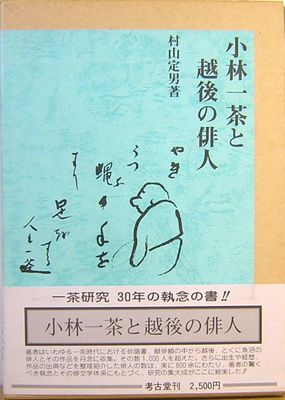 小林一茶と
越後の俳人
村山定男著
やせ
うつ
な
蝿が手を
すり
足を
する
人も一茶
一茶研究 30年の執念の書!!
小林一茶と越後の俳人
著者はいわゆる一茶時代における俳諧書、献俳額の中から越後、とくに魚沼の
俳人とその作品を丹念に収集。その数1,000人を超えた。さらに出生や経歴、
作品の出典などを整理紹介した俳人の数は、実に800余にわたり、著者の驚く
べき執念とその俳文学体系にもとづく、研究の集大成がここに結実した!
考古堂刊 2,500円